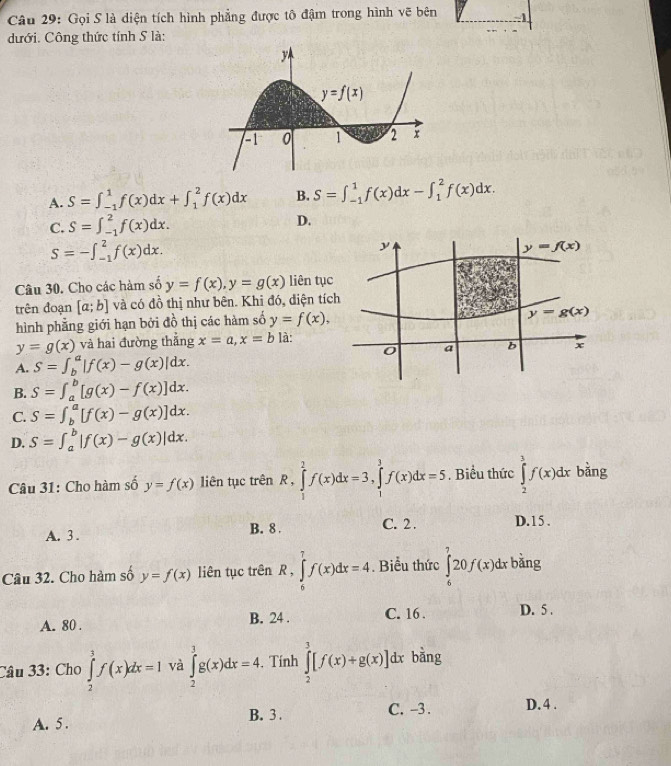 Câu 29: Gọi S là diện tích hình phẳng được tô đậm trong hình vẽ bên
dưới. Công thức tính S là:
y
y=f(x)
-1 0 1 2 x
A. S = ∫_{-1}^{1} f(x)dx + ∫_{1}^{2} f(x)dx B. S = ∫_{-1}^{1} f(x)dx − ∫_{1}^{2} f(x)dx.
C. S = ∫_{-1}^{2} f(x)dx. D.
S = −∫_{-1}^{2} f(x)dx.
Câu 30. Cho các hàm số y = f(x), y = g(x) liên tục
trên đoạn [a; b] và có đồ thị như bên. Khi đó, diện tích
hình phẳng giới hạn bởi đồ thị các hàm số y = f(x),
y = g(x) và hai đường thẳng x = a, x = b là:
A. S = ∫_{b}^{a} |f(x) − g(x)|dx.
B. S = ∫_{a}^{b} [g(x) − f(x)]dx.
C. S = ∫_{b}^{a} [f(x) − g(x)]dx.
D. S = ∫_{a}^{b} |f(x) − g(x)|dx.
y
y = f(x)
y = g(x)
O a b x
Câu 31: Cho hàm số y = f(x) liên tục trên R, ∫_{1}^{2} f(x)dx = 3, ∫_{1}^{3} f(x)dx = 5. Biểu thức ∫_{2}^{3} f(x)dx bằng
A. 3. B. 8. C. 2. D.15.
Câu 32. Cho hàm số y = f(x) liên tục trên R, ∫_{6}^{7} f(x)dx = 4. Biểu thức ∫_{6}^{7} 20f(x)dx bằng
A. 80. B. 24. C. 16. D. 5.
Câu 33: Cho ∫_{2}^{3} f(x)dx = 1 và ∫_{2}^{3} g(x)dx = 4. Tính ∫_{2}^{3} [f(x)+g(x)]dx bằng
A. 5. B. 3. C. −3. D.4.